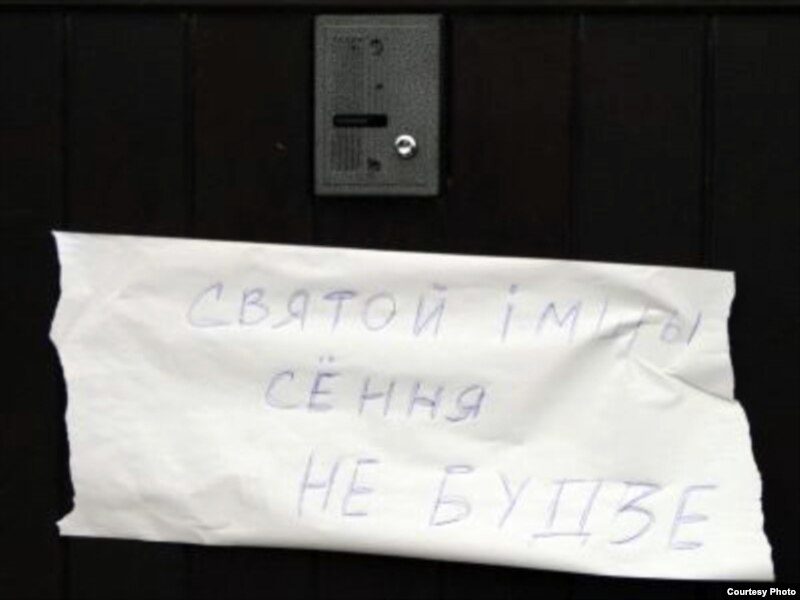 СВЯТОЙ ІМШЫ
СЁННЯ
НЕ БУДЗЕ
Courtesy Photo